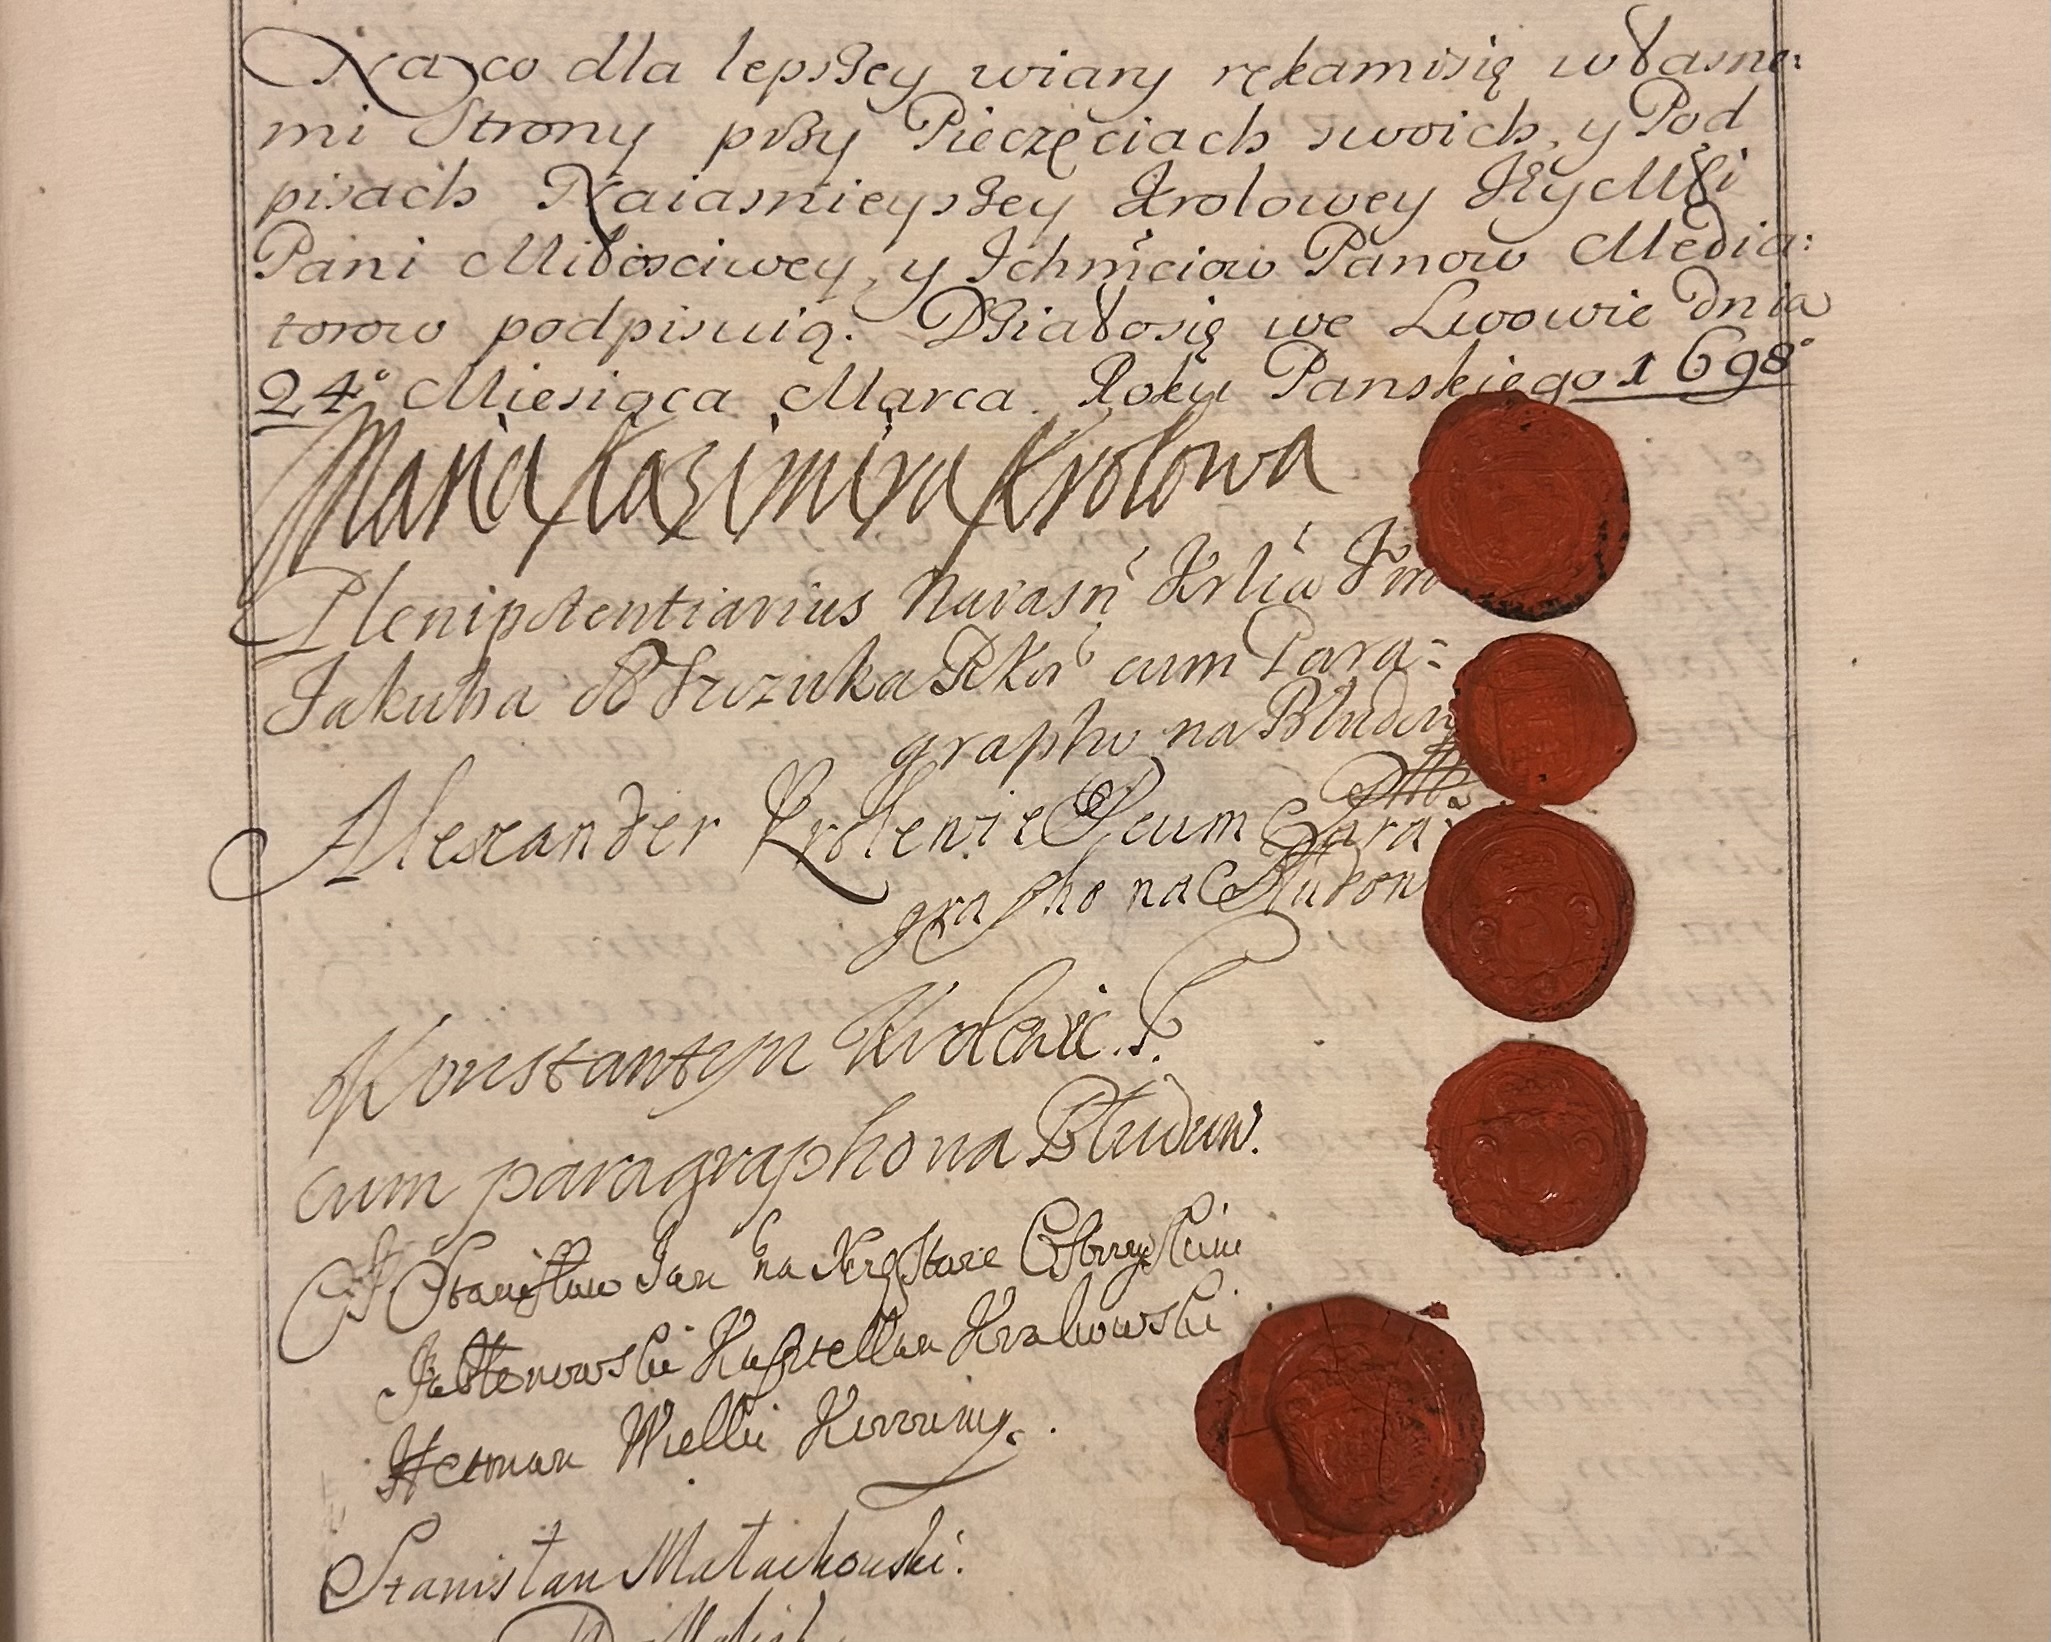 Na co dla lepszey wiary rękamisię własne:
mi Strony przy Pieczęciach swoich, y Pod
pisach Naiasnieyszey Krolowey JEyMści
Pani Miłosciwey, y Ichmciow Panow Media:
torow podpisuią. Działosię we Lwowie dnia
24° Miesiąca Marca. Roku Panskiego 1698°
Maria Kazimira Krolowa
Plenipotentiarius Naiasń Krlica Jm
Jakuba cum Para=
grapho na Błudow
Alexander Krolewic cum Para:
grapho na Błudow
Konstantyn Krolewic. P.
cum paragrapho na Błudow.
Stanisław Jan na
Jabłonowski Kasztellan Krakowski
Hetman Wielki Koronny.
Stanisław Małachowski.